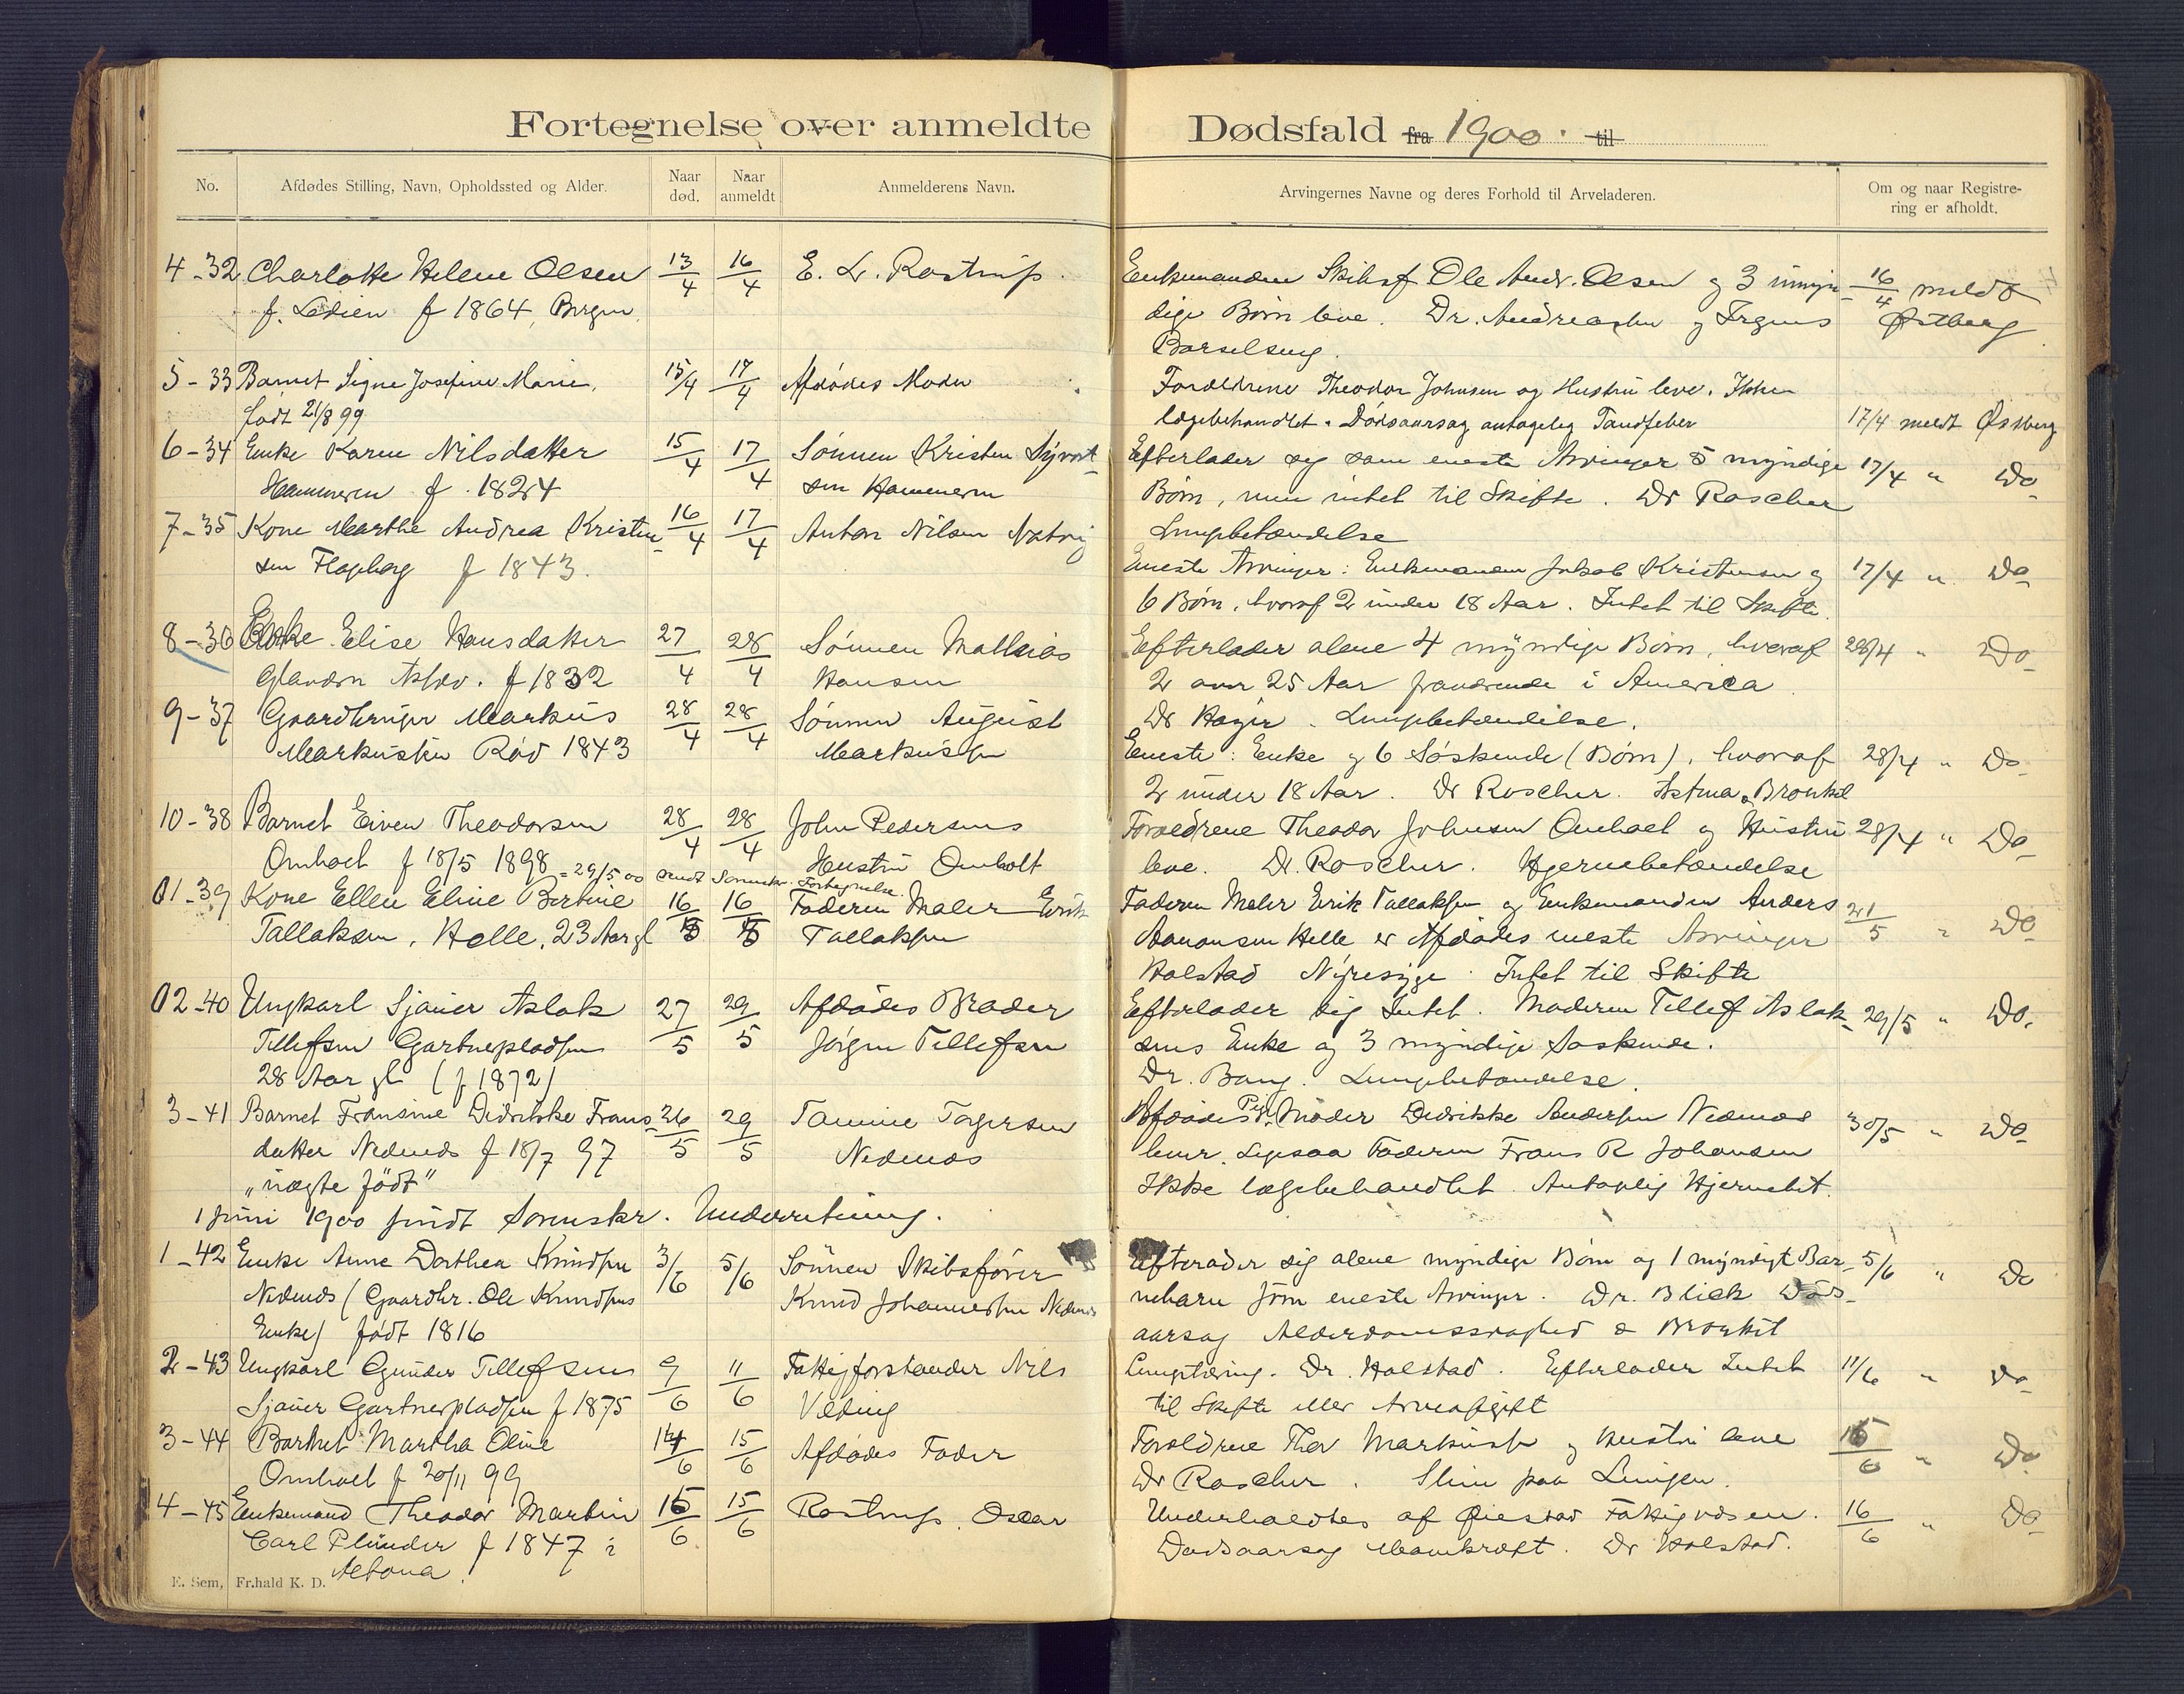 Fortegnelse over anmeldte Dødsfald fra 1900. til
No.
Afdødes Stilling, Navn, Opholdssted og Alder.
Naar død.
Naar anmeldt
Anmelderens Navn.
Arvingernes Navne og deres Forhold til Arveladeren.
Om og naar Registrering er afholdt.
4-32 Charlotte Helene Olsen 13/4 16/4 E. L. Rostrup.
f. f 1864, Bergen
Enkemanden Skibsf Ole Andr. Olsen og 3 umyn- 16/4 meldt
dige Børn leve. Dr. og Østberg
Barselseng.
5-33 Barnet Signe Josefine Marie, 15/4 17/4 Afdødes Moder
født 21/8 99
Forældrene Theodor Johnsen og Hustru leve. Ikke
lægebehandlet. Dødsaarsag antagelig Tandfeber 17/4 meldt Østberg
6-34 Enke Karen Nilsdatter 15/4 17/4 Sønnen Kristen Syvert-
Hammeren f. 1824 sen Hammeren
Efterlader sig som eneste Arvinger 5 myndige 17/4 " Do
Børn, men intet til Skifte. Dr Roscher
Lungebetændelse
7-35 Kone Marthe Andrea Kristen- 16/4 17/4 Anton Nilsen Natvig
sen f 1843.
Eneste Arvinger: Enkemanden Jakob Kristensen og 17/4 " Do
6 Børn, hvoraf 2 under 18 Aar. Intet til Skifte.
8-36 Enke Elise Hansdatter 27/4 28/4 Sønnen Mathias
f 1832 Hansen
Efterlader alene 4 myndige Børn, hvoraf 28/4 " Do
2 over 25 Aar fraværende i America
Dr Høyer. Lungebetændelse.
9-37 Gaardbruger Markus 28/4 28/4 Sønnen August
Markussen Rød 1843 Markussen
Eneste: Enke og 6 Søskende (Børn), hvoraf 28/4 " Do
2 under 18 Aar. Dr Roscher. Astma & Bronkit
10-38 Barnet Eiven Theodorsen 28/4 28/4 John Pedersens
Omholt f 18/5 1898 Hustru Omholt
Forældrene Theodor Johnsen Omholt og Hustru 28/4 " Do
leve. Dr. Roscher. Hjernebetændelse
= 29/5 00 sendt Sorenskr. Fortegnelse.
01-39 Kone Ellen Eline Bertine 16/5 16/5 Faderen Maler Erik
Tallaksen, Helle, 23 Aar gl Tallaksen
Faderen Maler Erik Tallaksen og Enkemanden Anders 21/5 " Do
Aanonsen Helle er Afdødes eneste Arvinger
Holstad Nyresyge. Intet til Skifte
02-40 Ungkarl Sjauer Aslak 27/5 29/5 Afdødes Broder
Tellefsen Gartnerpladsen Jørgen Tellefsen
28 Aar gl (f 1872)
Efterlader sig Intet. Moderen Tellef Aslak- 29/5 " Do.
sens Enke og 3 myndige Søskende.
Dr. Bang. Lungebetændelse.
3-41 Barnet Fransine Didrikke Frans- 26/5 29/5 Tomine Torgersen
datter Nedenes f 18/7 97 Nedenes
"uægte født"
Afdødes Moder Didrikke Andersen Nedenes 30/5 " Do
lever. Ligesaa Faderen Frans R Johansen
Ikke lægebehandlet. Antagelig Hjernebet.
1 juni 1900 sendt Sorenskr. Underretning.
1-42 Enke Anne Dorthea Knudsen 3/6 5/6 Sønnen Skibsfører
Nedenes (Gaardbr. Ole Knudsens Knud Johannessen Nedenes
Enke) født 1816
Efterlader sig alene myndige Børn og 1 myndigt Bar- 5/6 " Do
nebarn som eneste Arvinger. Dr. Blick Døds-
aarsag Alderdomssvaghed & Bronkit
2-43 Ungkarl Gunder Tellefsen 9/6 11/6 Fattigforstander Nils
Sjauer Gartnerpladsen f 1875 Velding
Lungetæring. Dr. Holstad. Efterlader Intet 11/6 " Do
til Skifte eller Arveafgift
3-44 Barnet Martha Oline 14/6 15/6 Afdødes Fader
Omholt f 20/11 99
Forældrene Thor Markussen og Hustru leve 15/6 " Do
Dr Roscher. Slim paa Lungen.
4-45 Enkemand Theodor Martin 15/6 15/6 Rostrup. Oscar
Carl Plünder f 1847 i
Altona.
Underholdtes af Øiestad Fattigvæsen. 16/6 " Do
Dødsaarsag Mavekræft. Dr Holstad.
E. Sem, Fr.hald K. D.